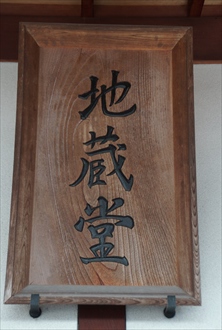 地蔵堂